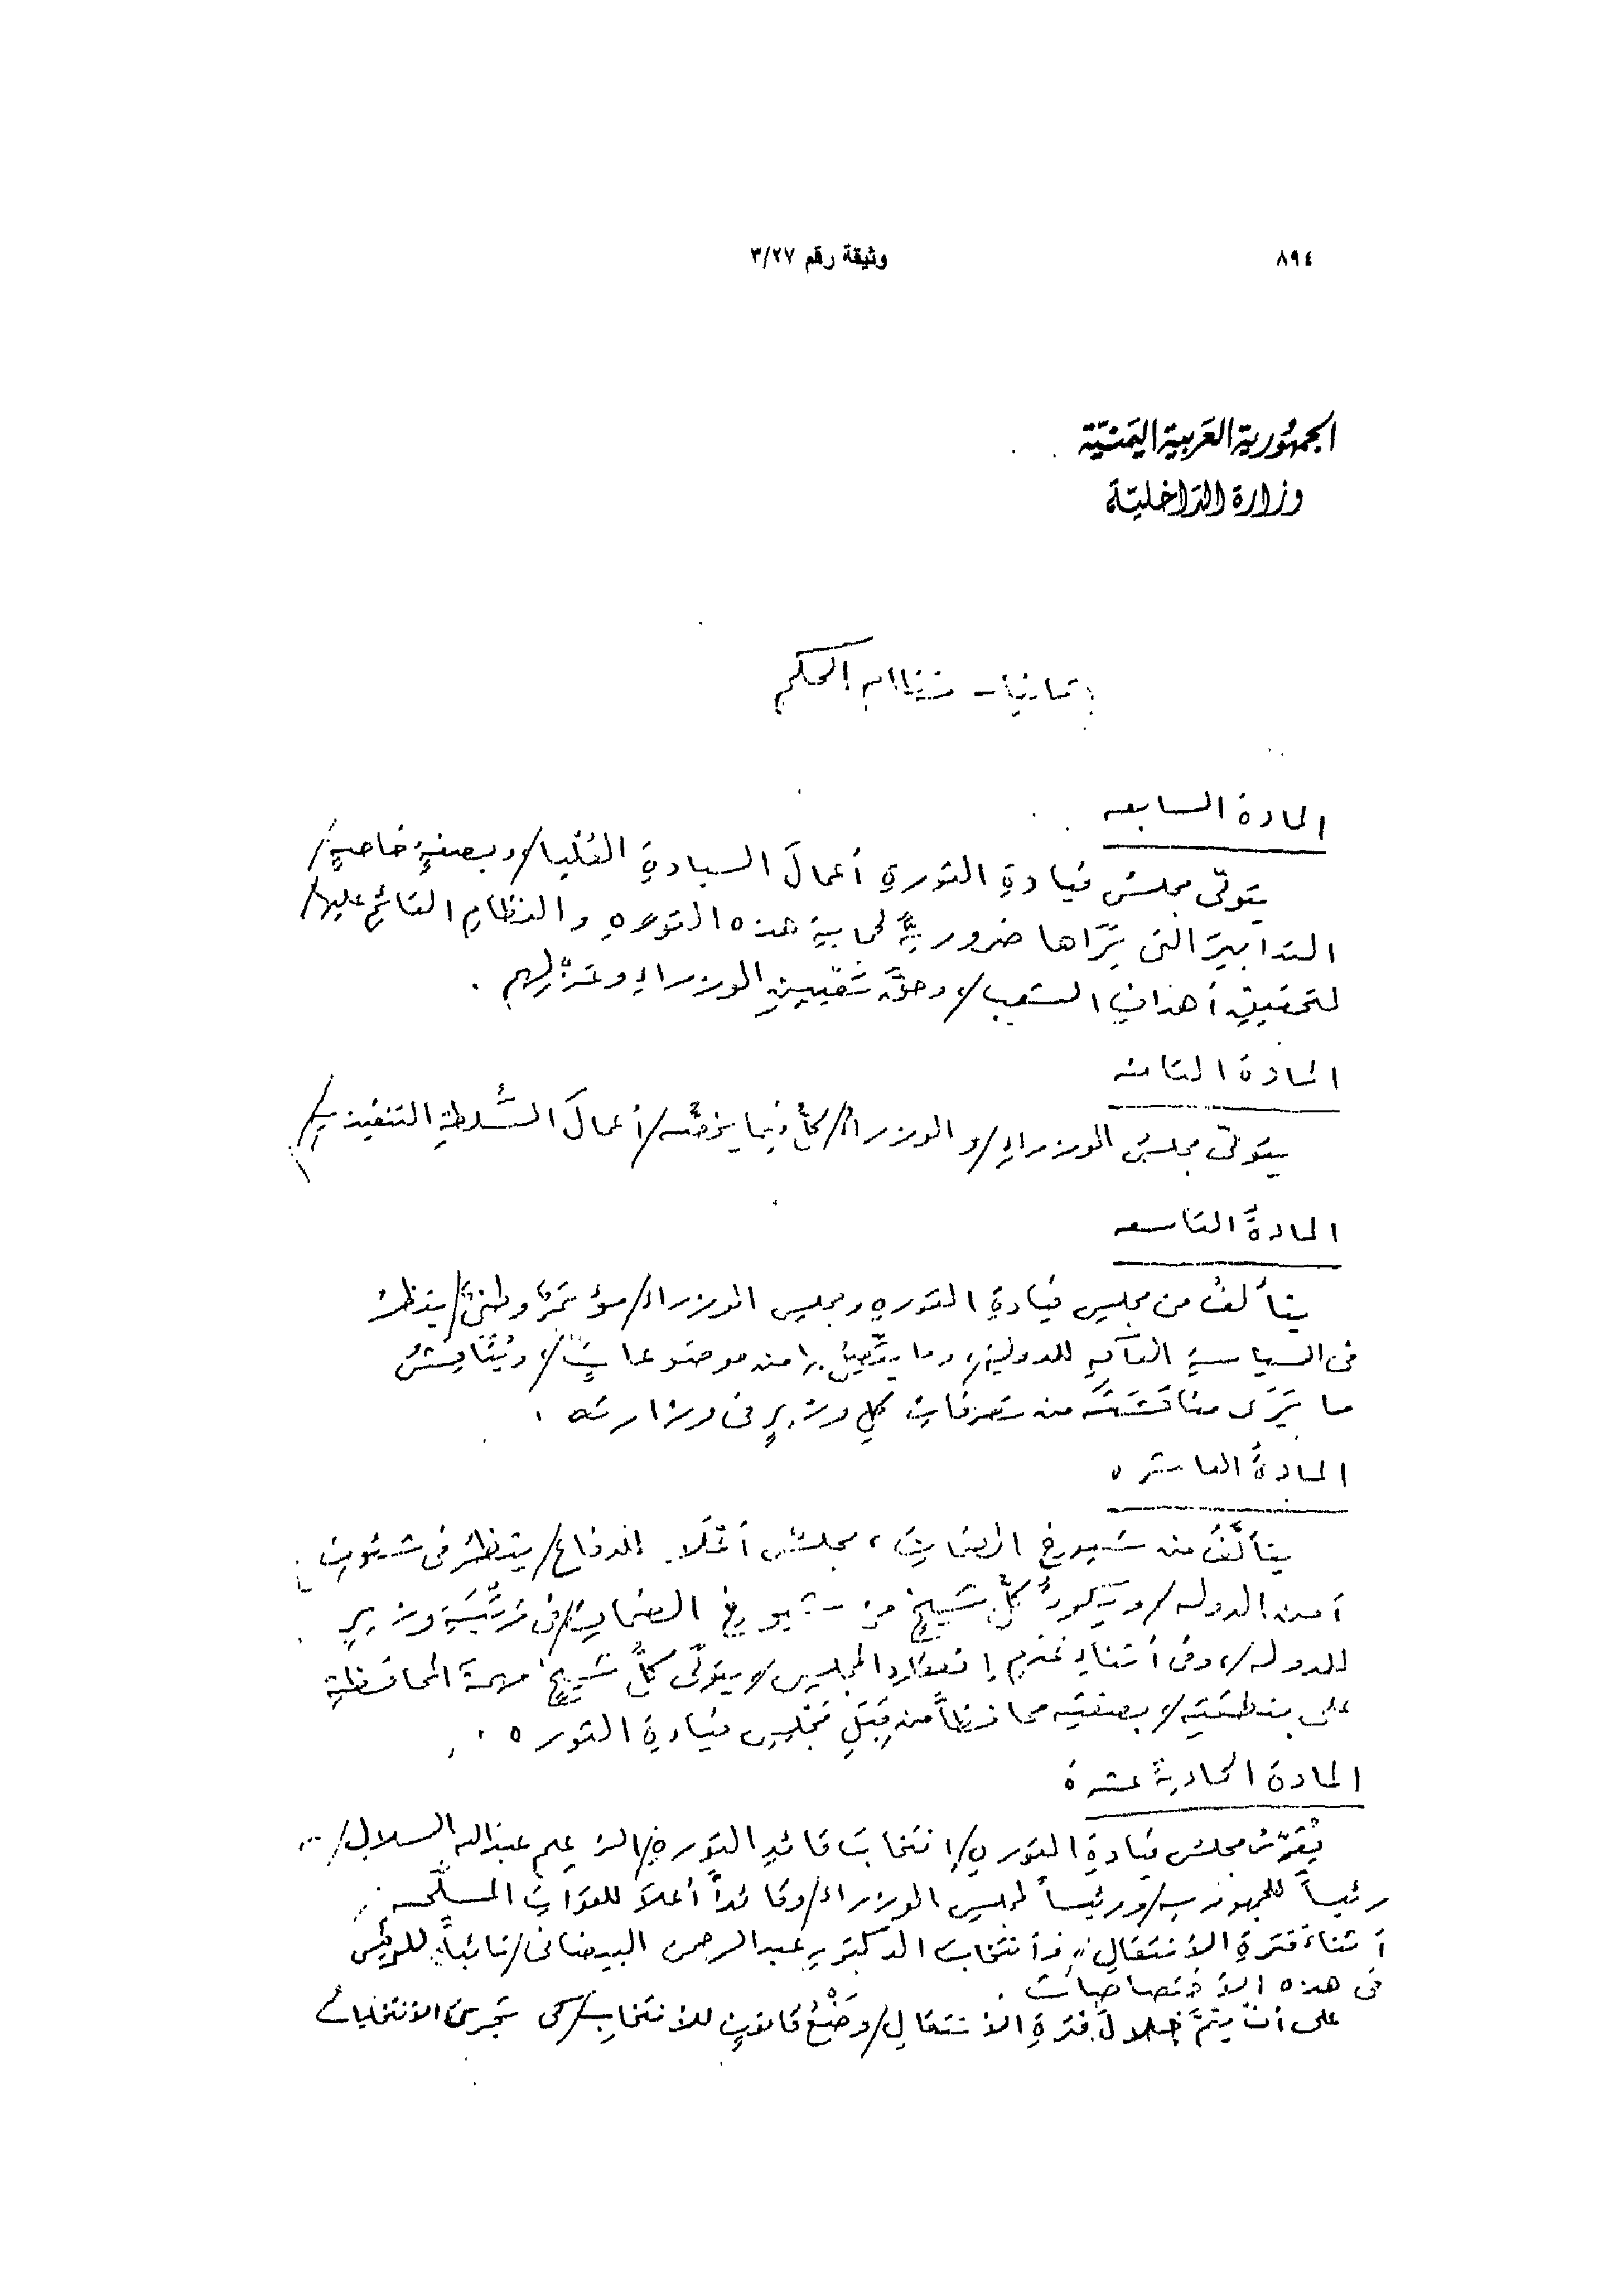 ٨٩٤
وثيقة رقم ٣/٢٧
الجمهُورية العَربية اليَمَنيّة
وزارة الدّاخليّة
ثانيا - نظام الحكم
المادة السابعه
يتولّى مجلسُ قيادةِ الثورةِ أعمالَ السيادةِ العُليا/، وبصفةٍ خاصةٍ/
التدابيرَ التى يَرَاها ضروريةً لحمايةِ هذه الثورهِ والنظامِ القائمِ عليها/
لتحقيقِ أهدافِ الشعب/، وحقَّ تَعْيينِ الوزراءِ وعَزْلِهم .
المادة الثامنه
يتولّى مجلسُ الوزراءِ/و الوزراءُ/كلٌّ فيما يخصُّه/أعمالَ السُّلطةِ التنفيذيةِ/
المادةُ التاسعه
يتألفُ من مجلسِ قيادةِ الثورهِ ومجلسِ الوزراء/مؤتمرٌ وطنىٌّ/ينظرُ
فى السياسةِ العآمهِ للدولةِ، وما يتّصِلُ بها من موضوعاتٍ/، ويُنَاقِشُ
ما يَرَى مناقَشَتَه من تصرفاتِ كلِّ وزيرٍ فى وزارته .
المادةُ العاشره
يتألَّفُ من شيوخِ الضماناتِ، مجلسٌ أعْلَا للدفاع/ينظرُ فى شئونِ
أمن الدوله/ويكونُ كلُّ شيخٍ من شيوخِ الضمانِ/فى مَرْتَبَةِ وزيرٍ
للدوله/، وفى أثناءِ عَدَمِ إنعقادِ المجلسِ/، يتولّى كلُّ شَيخٍ مهمةَ المحافظةِ
على منطقتِه/، بصفتِه محافظاً من قِبَلِ مَجْلسِ قيادةِ الثوره .
المادة الحاديةُ عشرة
يُقرِّرُ مجلسُ قيادةِ الثورةِ/إنتخابَ قائدِ الثورةِ/الزعيم عبدالله السلال/
رئيساً للجمهوريه/ورئيساً لمجلسِ الوزراء/وقائداً أعلاَ للقواتِ المسلَّحه
أثناءَ فترةِ الأنتقالِ، وأنتخابَ الدكتورِ عبدالرحمن البيضانى/نائباً للرئيس
فى هذه الأختصاصات .
على أن يتمَّ خلالَ فترةِ الانتقالِ/وضْعُ قانونٍ للأنتخابِ/كى تجرىَ الانتخابات